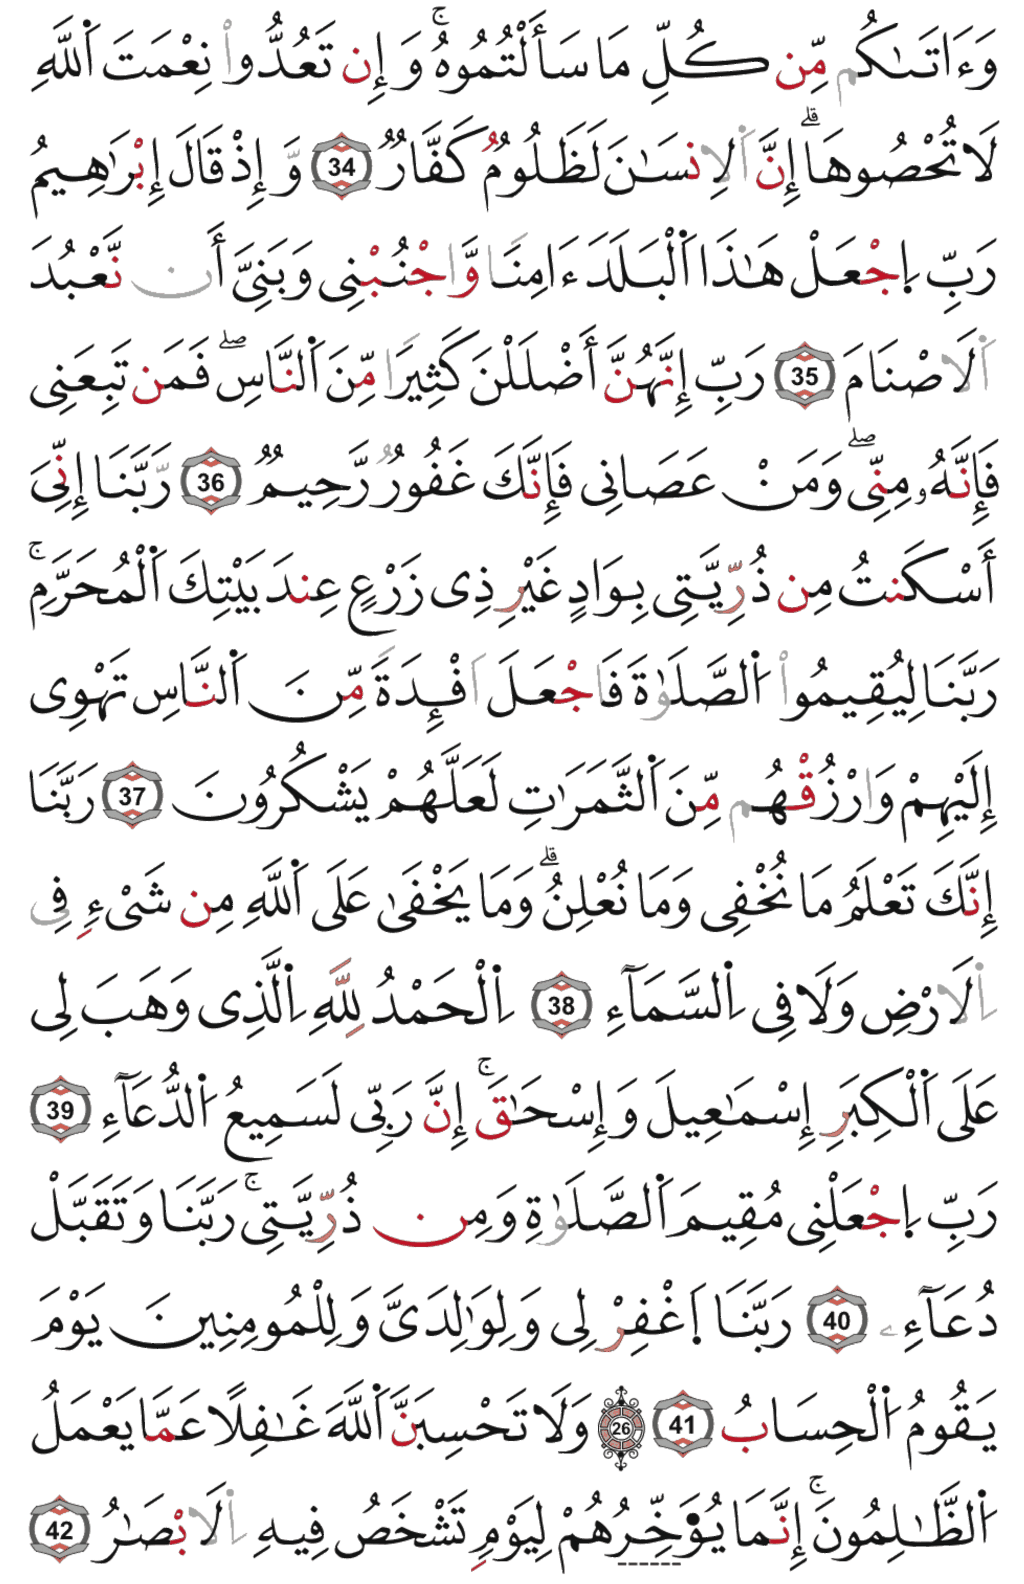 وَءَاتَىٰكُم مِّن كُلِّ مَا سَأَلْتُمُوهُۚ وَإِن تَعُدُّوا۟ نِعْمَتَ اَ۬للَّهِ
لَا تُحْصُوهَاۗ إِنَّ اَ۬لِانسَٰنَ لَظَلُومٌ كَفَّارٌ 34 وَإِذْ قَالَ إِبْرَٰهِيمُ
رَبِّ اِ۪جْعَلْ هَٰذَا اَ۬لْبَلَدَ ءَامِنًا وَّاجْنُبْنِى وَبَنِىَّ أَن نَّعْبُدَ
اَ۬لَاصْنَامَ 35 رَبِّ إِنَّهُنَّ أَضْلَلْنَ كَثِيرًا مِّنَ اَ۬لنَّاسِۖ فَمَن تَبِعَنِى
فَإِنَّهُۥ مِنِّىۖ وَمَنْ عَصَانِى فَإِنَّكَ غَفُورٌ رَّحِيمٌ 36 رَّبَّنَا إِنِّىَ
أَسْكَنتُ مِن ذُرِّيَّتِى بِوَادٍ غَيْرِ ذِى زَرْعٍ عِندَ بَيْتِكَ اَ۬لْمُحَرَّمِۚ
رَبَّنَا لِيُقِيمُوا۟ اُ۬لصَّلَوٰةَ فَاجْعَلَ اَفْـِٕدَةً مِّنَ اَ۬لنَّاسِ تَهْوِى
إِلَيْهِمْ وَارْزُقْهُم مِّنَ اَ۬لثَّمَرَٰتِ لَعَلَّهُمْ يَشْكُرُونَ 37 رَبَّنَا
إِنَّكَ تَعْلَمُ مَا نُخْفِى وَمَا نُعْلِنُۗ وَمَا يَخْفَىٰ عَلَى اَ۬للَّهِ مِن شَىْءٍ فِى
اِ۬لَارْضِ وَلَا فِى اِ۬لسَّمَآءِ 38 اِ۬لْحَمْدُ لِلَّهِ اِ۬لَّذِى وَهَبَ لِى
عَلَى اَ۬لْكِبَرِ إِسْمَٰعِيلَ وَإِسْحَٰقَۚ إِنَّ رَبِّى لَسَمِيعُ اُ۬لدُّعَآءِ 39
رَبِّ اِ۪جْعَلْنِى مُقِيمَ اَ۬لصَّلَوٰةِ وَمِن ذُرِّيَّتِىۚ رَبَّنَا وَتَقَبَّلْ
دُعَآءِۦ 40 رَبَّنَا اَ۪غْفِرْ لِى وَلِوَٰلِدَىَّ وَلِلْمُومِنِينَ يَوْمَ
يَقُومُ اُ۬لْحِسَابُ 41 26 وَلَا تَحْسِبَنَّ اَ۬للَّهَ غَٰفِلًا عَمَّا يَعْمَلُ
اُ۬لظَّٰلِمُونَۚ إِنَّمَا يُوَ۬خِّرُهُمْ لِيَوْمٍ تَشْخَصُ فِيهِ اِ۬لَابْصَٰرُ 42